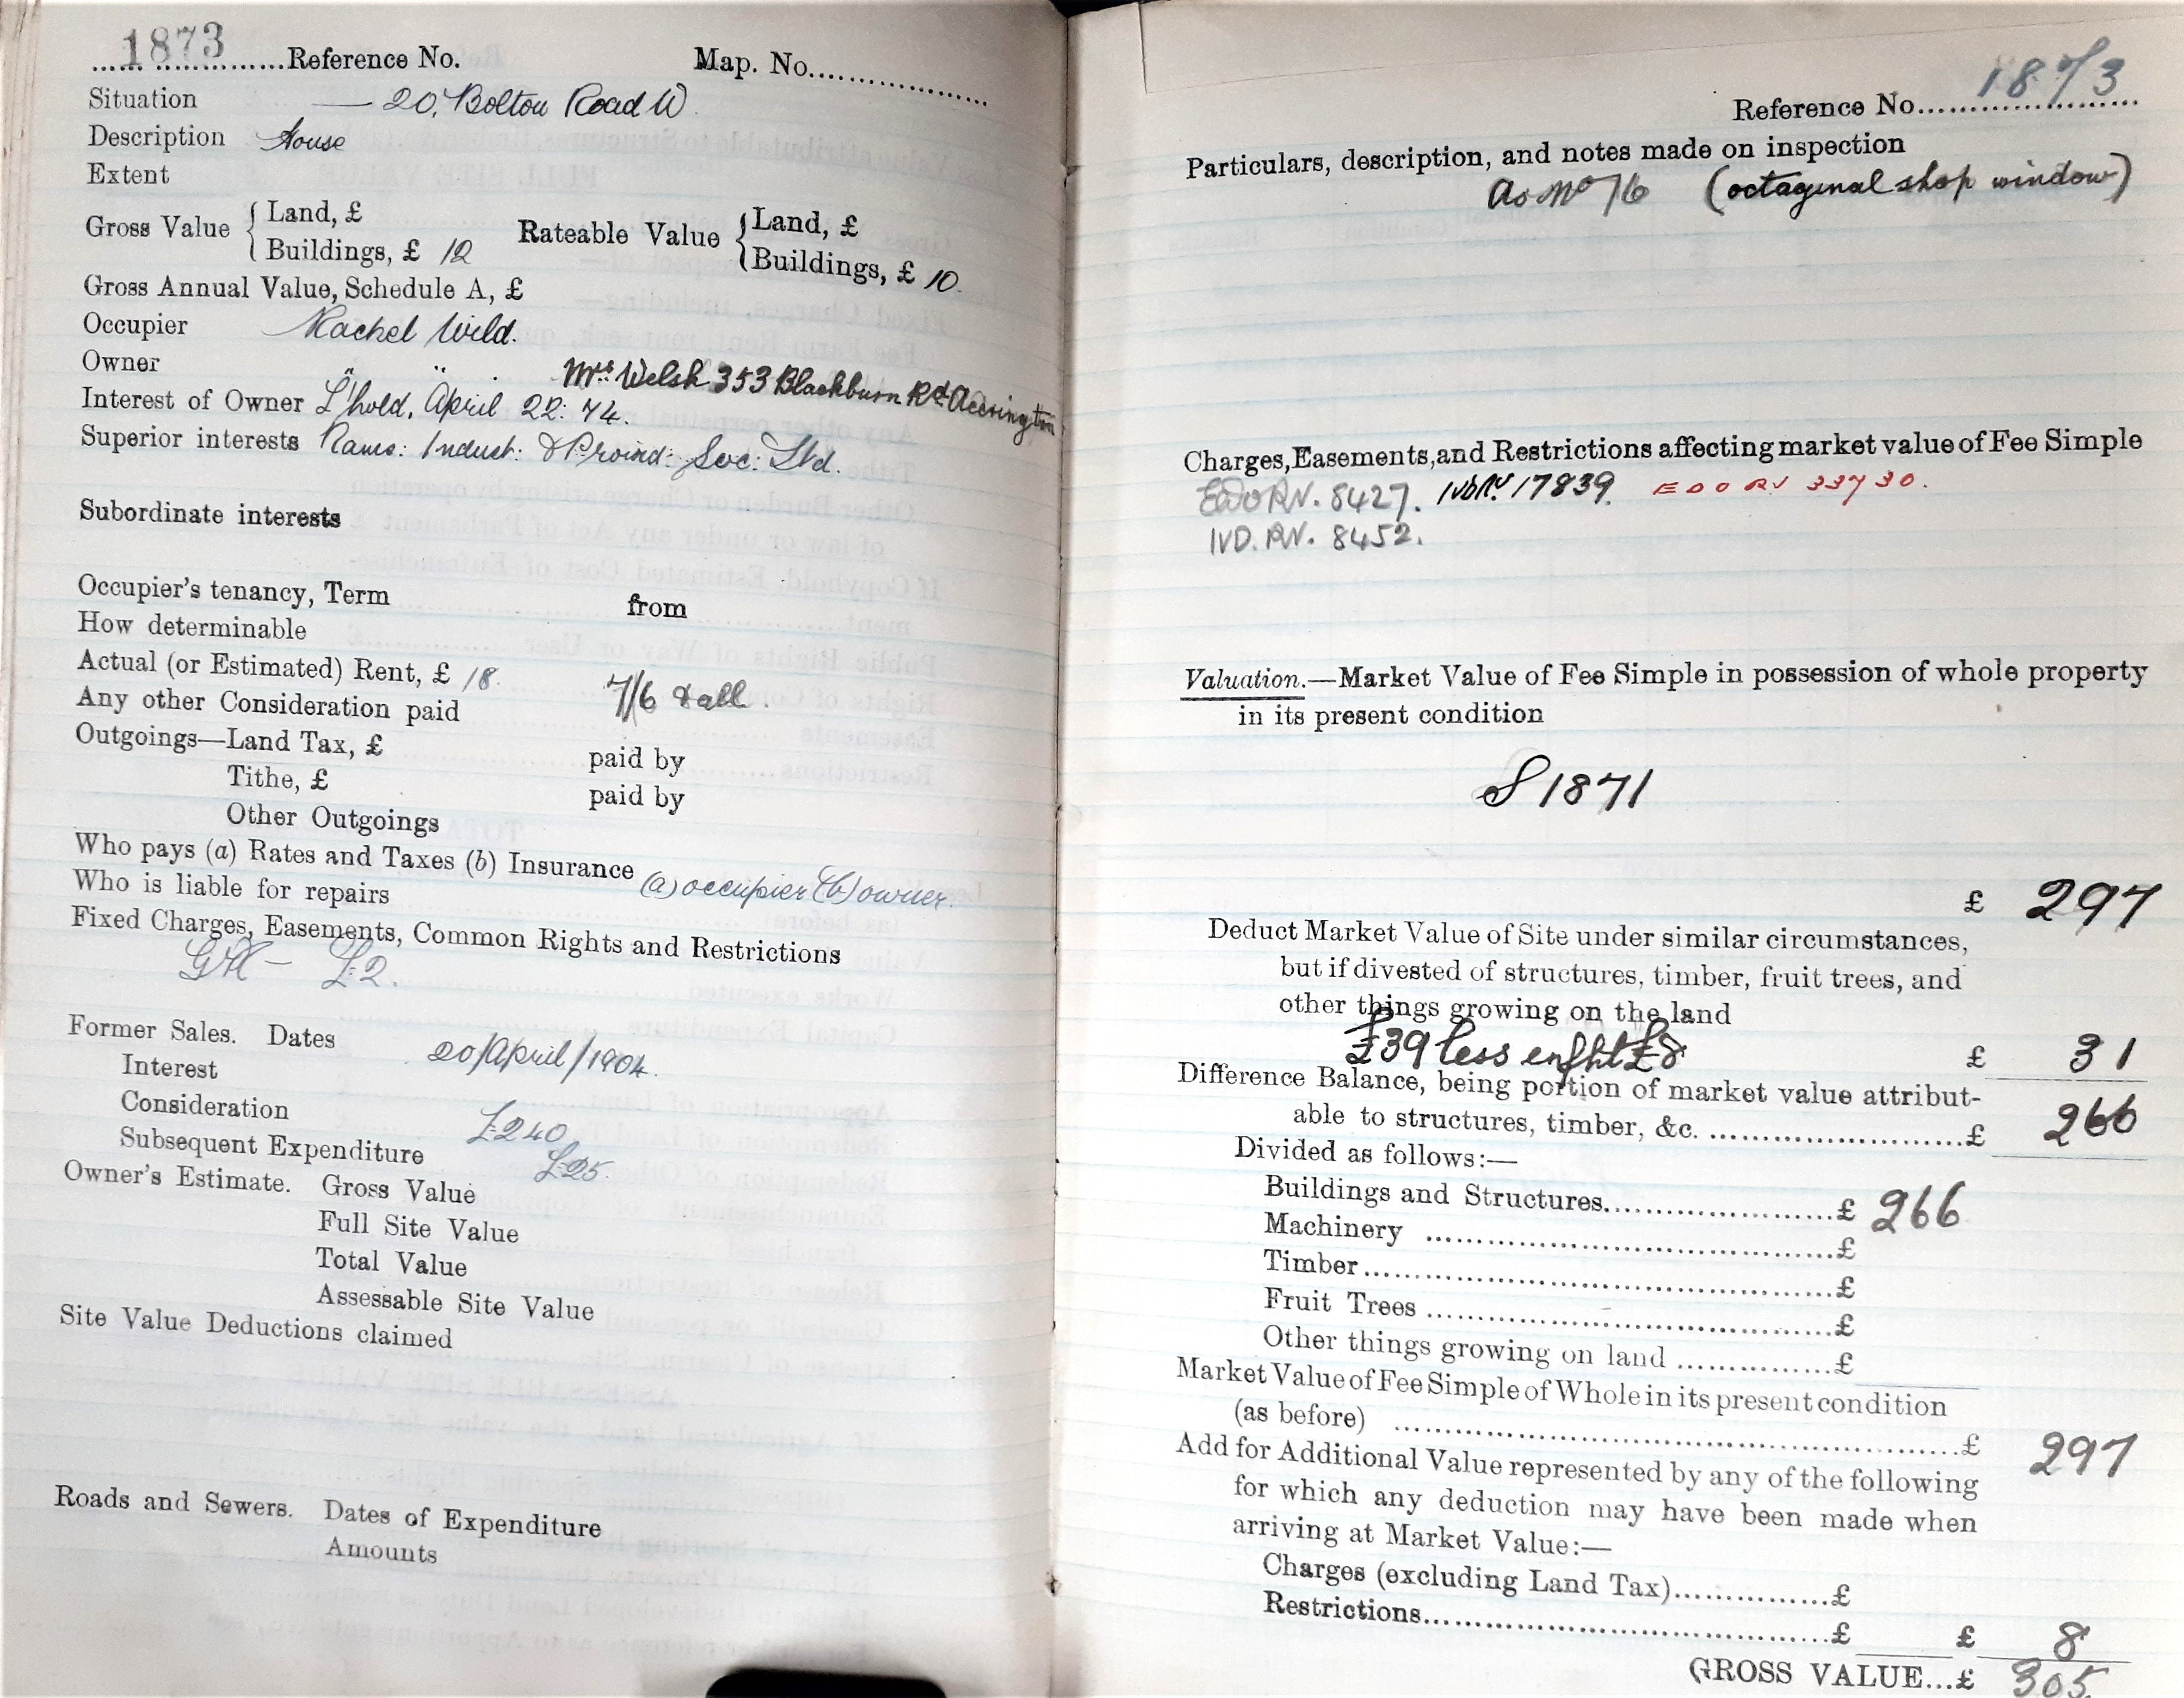 1873
...... ...............Reference No. Map. No...................
Situation — 20, Bolton Road W
Description House
Extent
Gross Value { Land, £ Rateable Value { Land, £
Buildings, £ 12 Buildings, £ 10.
Gross Annual Value, Schedule A, £
Occupier Rachel Wild.
Owner " " . Mrs. Welsh 353 Blackburn Rd. Accrington
Interest of Owner L'hold, April 22: 74.
Superior interests Rams: Indust: & Provind: Soc: Ltd.
Subordinate interests
Occupier's tenancy, Term from
How determinable
Actual (or Estimated) Rent, £ 18. 7/6 & all.
Any other Consideration paid
Outgoings—Land Tax, £ paid by
Tithe, £ paid by
Other Outgoings
Who pays (a) Rates and Taxes (b) Insurance (a) occupier (b) owner.
Who is liable for repairs
Fixed Charges, Easements, Common Rights and Restrictions
GR — £2.
Former Sales. Dates 20/April/1904.
Interest
Consideration £240
Subsequent Expenditure £25.
Owner's Estimate. Gross Value
Full Site Value
Total Value
Assessable Site Value
Site Value Deductions claimed
Roads and Sewers. Dates of Expenditure
Amounts
1873
Reference No.......................
Particulars, description, and notes made on inspection
As No 76 (octagonal shop window)
Charges, Easements, and Restrictions affecting market value of Fee Simple
EDO RN. 8427. IVD RN. 17839. EDO RN 33730.
IVD. RN. 8452.
Valuation.—Market Value of Fee Simple in possession of whole property
in its present condition
S 1871
£ 297
Deduct Market Value of Site under similar circumstances,
but if divested of structures, timber, fruit trees, and
other things growing on the land
£39 less enfht £8 £ 31
Difference Balance, being portion of market value attribut-
able to structures, timber, &c. ..........................£ 266
Divided as follows:—
Buildings and Structures.......................£ 266
Machinery .......................................£
Timber..............................................£
Fruit Trees .......................................£
Other things growing on land ...............£
Market Value of Fee Simple of Whole in its present condition
(as before) .....................................................£ 297
Add for Additional Value represented by any of the following
for which any deduction may have been made when
arriving at Market Value:—
Charges (excluding Land Tax)...............£
Restrictions.......................................£ £ 8
GROSS VALUE...£ 305